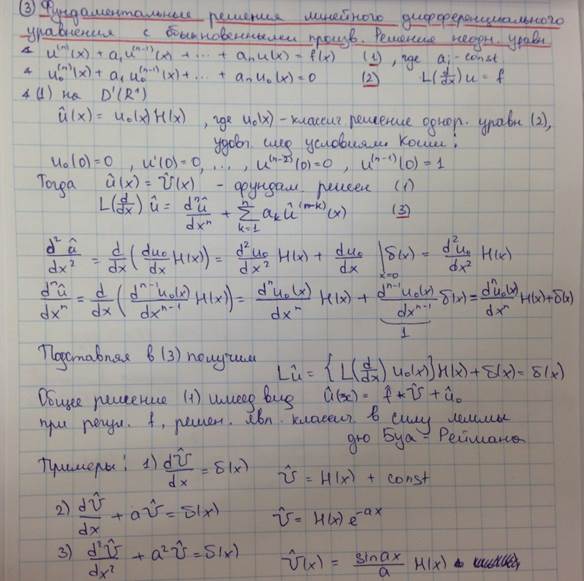 (3) Фундаментальные решения линейного дифференциального
уравнения с обыкновенными произв. Решение неодн. уравн.
u^(n)(x) + a₁u^(n-1)(x) + ... + aₙu(x) = f(x) (1), где aᵢ - const
u₀^(n)(x) + a₁u₀^(n-1)(x) + ... + aₙu₀(x) = 0 (2) L(d/dx)u = f
(1) на D'(R¹)
û(x) = u₀(x)H(x), где u₀(x) - классич решение однор. уравн (2),
удовл. след условиям Коши:
u₀(0)=0, u'(0)=0, ..., u^(n-2)(0)=0, u^(n-1)(0)=1
Тогда û(x) = V̂(x) - фундам. решен (1)
L(d/dx)û = dⁿû/dxⁿ + Σ_{k=1}^{n} aₖû^(n-k)(x) (3)
d²û/dx² = d/dx (du₀/dx H(x)) = d²u₀/dx² H(x) + du₀/dx |_{x=0} δ(x) = d²u₀/dx² H(x)
dⁿû/dxⁿ = d/dx (d^{n-1}u₀(x)/dx^{n-1} H(x)) = dⁿu₀(x)/dxⁿ H(x) + d^{n-1}u₀(x)/dx^{n-1} δ(x) = dⁿu₀(x)/dxⁿ H(x) + δ(x)
1
Подставляя в (3) получим
Lû = {L(d/dx)u₀(x)}H(x) + δ(x) = δ(x)
Общее решение (1) имеет вид û(x) = f * V̂ + û₀
при регул. f, решен. явл. классич. в силу леммы
дю Буа-Реймана
Примеры: 1) dV̂/dx = δ(x) V̂ = H(x) + const
2) dV̂/dx + aV̂ = δ(x) V̂ = H(x)e^{-ax}
3) d²V̂/dx² + a²V̂ = δ(x) V̂(x) = sin ax/a H(x)